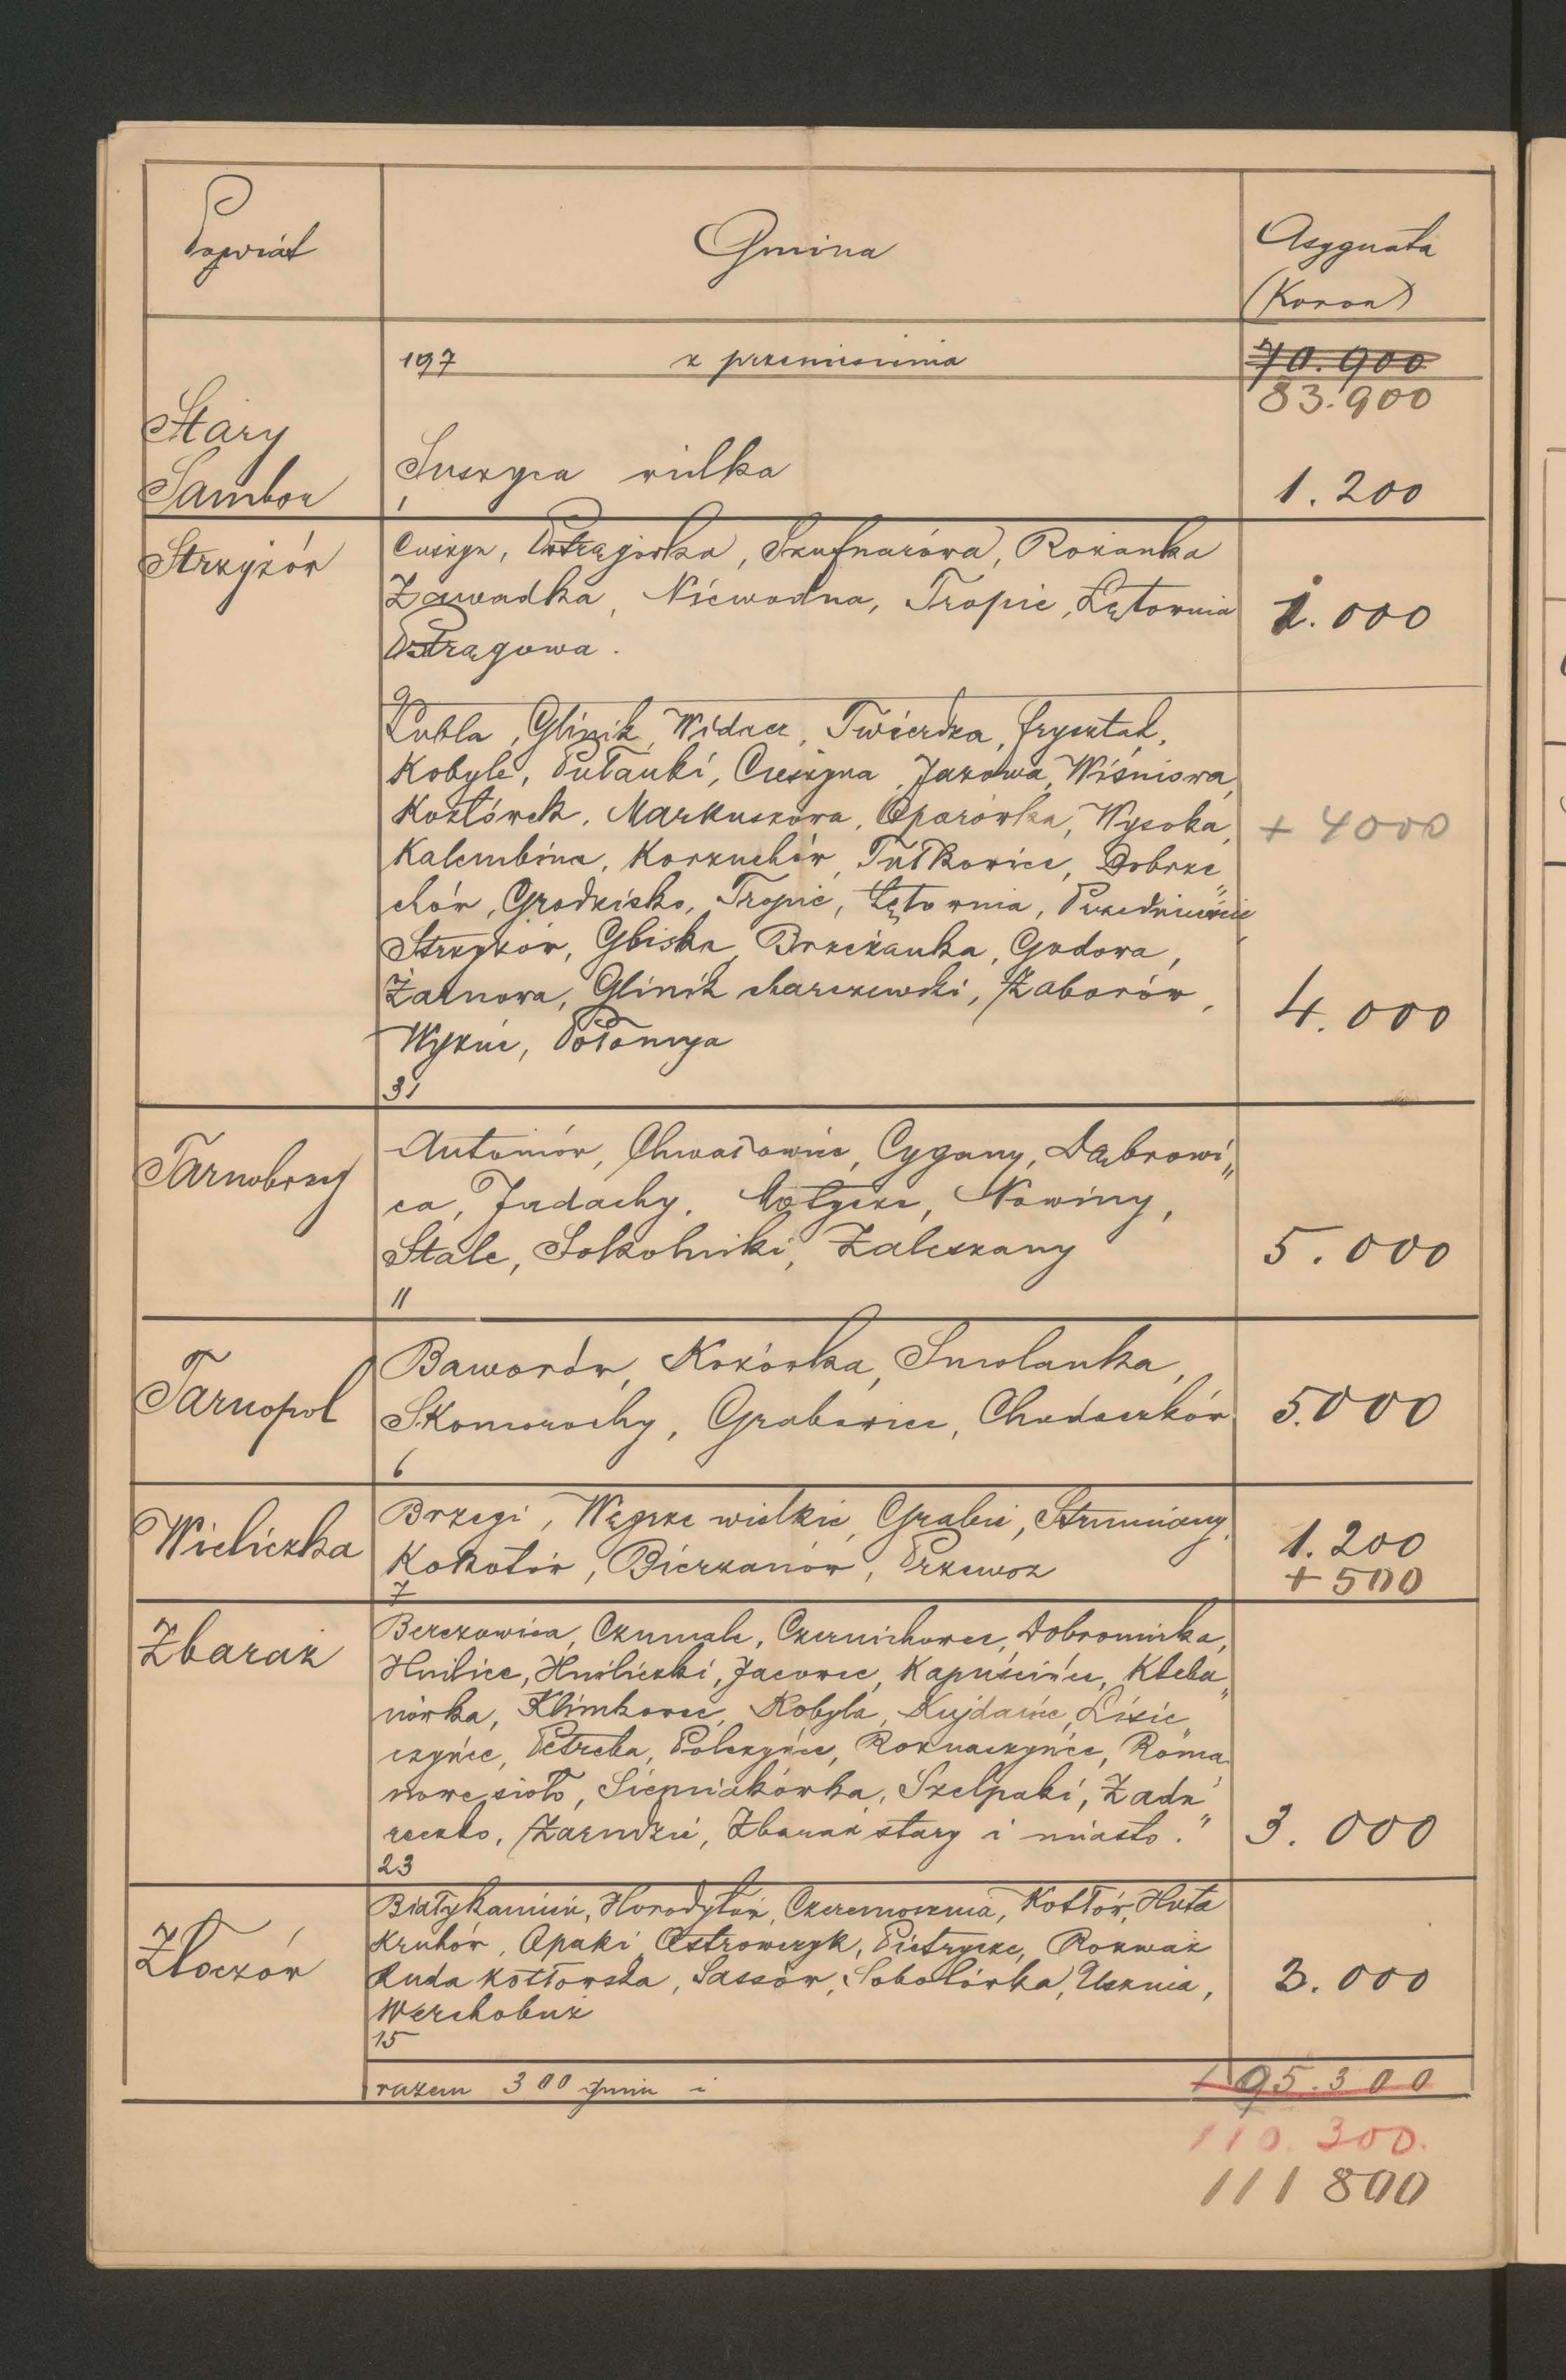 Powiat
Gmina
Asygnata
(Koron)
197 z przeniesienia
70.900
83.900
Stary
Sambor
Suszyca wielka
1
1.200
Strzyżów
Pstrągówka, Szufnarowa, Rożanka
Zawadka, Niewodna, Tropie, Łętownia
Pstrągowa.
9
1.000
Lubla, Glinik, Widacz, Twierdza, Frysztak,
Kobyle, Pułanki, Cieszyna, Jazowa, Wiśniowa,
Kozłówek, Markuszowa, Oparówka, Wysoka,
Kalembina, Korzuchów, Tułkowice, Dobrze
chów, Grodzisko, Tropie, Łętownia, Przedmieście
Strzyżów, Gbiska, Brzeżanka, Godowa,
Żarnowa, Glinik charzewski, Zaborów,
Wyżne, Połomyja
31
+ 4000
4.000
Tarnobrzeg
Antoniów, Chwałowice, Cygany, Dąbrowi„
ca, Jadachy, Motycze, Nowiny,
Stale, Sokolniki, Zaleszany
11
5.000
Tarnopol
Baworów, Kozówka, Smolanka,
Skomorochy, Grabowiec, Chodaczków
6
5.000
Wieliczka
Brzegi, Węgrze wielkie, Grabie, Strumiany,
Kokotów, Bierzanów, Przewoz
7
1.200
+ 500
Zbaraż
Berezowica, Czumale, Czernichowce, Dobromirka,
Hnilice, Hniliczki, Jacowce, Kapuścińce, Kleba„
nówka, Klimkowce, Kobyla, Kujdańce, Lisie
czyńce, Petreba, Polczyńce, Roznaczyńce, Roma„
nowe sioło, Sieniakówka, Szelpaki, Zadn
reczko, Zarudzie, Zbaraż stary i miasto.
23
3.000
Złoczów
Białykamień, Horodyłów, Czeremosznia, Kołtów, Huta
Kruhów, Opaki, Ostrowczyk, Pietrycze, Rozważ
Ruda kołtowska, Sassów, Sobolówka, Usznia,
Werchobuż
15
3.000
razem 300 gmin i
195.300
110.300.
111 800